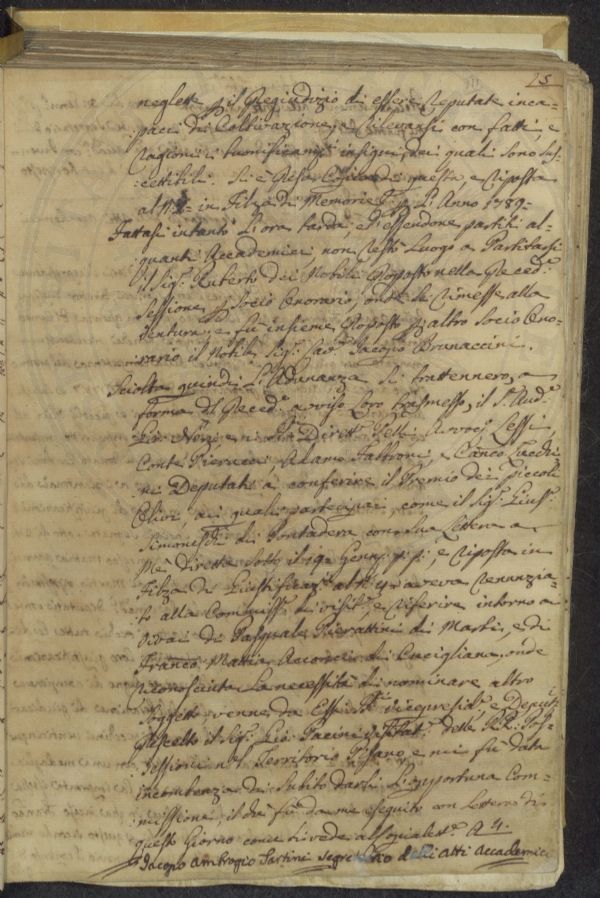 25
neglette p il Pregiudizio di essere reputate inca=
paci di Coltivazione, e rilevansi con fatti, e
ragioni i buonificamenti insigni, dei quali sono sus=
=cettibili. Si è Essa questa, e riposta
al N.° in Filza di Memorie p L'Anno 1789=
Fattasi intanto L'ora tarda, ed essendone partiti al=
quanti Accademici, non restò Luogo a Partitarsi
il Sig.r Ruberto dei Nobili Proposto nella Preced.e
Sessione p Socio Onorario, onde Si rimesse alla
ventura, e fu insieme Proposto p altro Socio Ono=
rario il Nobile Sig.r Cav.e Jacopo Brunaccini.
Sciolta quindi L'Adunanza Si trattennero, a
forma del Preced.e avviso Loro trasmesso, il S.r Aud.e
e Dirett.i Avvoc. Lessi,
Conte Pieracci, Adamo Fabbroni, e Can.co Zucchi=
ni Deputati a conferire il Premio dei Piccoli
Olivi, ai quali partecipai, come il Sig.r Gius.e
Simoneschi di Pontadera con Sua Lettera a
Me diretta Sotto il 19 Genn. p.p., e riposta in
Filza di Giustificaz.i al N. 4 aveva renunzia=
to alla Commiss.e di visit.e, e riferire intorno a
vivai di Pasquale Pierattini di Marti, e di
Franc.o Mattia Acconci di Cucigliana, onde
riconosciuta La necessità di nominare altro
Soggetto venne da Essi vicepresid.e e Deput.i
Prescelto il Sig.r Gio. Pacini visitat.e delle RR. Pos=
sessioni nel Territorio Pisano, e mi fu data
incombenza di Subito darli L'opportuna Com=
missione, il che fu da me eseguito con lettera di
questo Giorno come si vede al Copialett.e A 4.
Jacopo Ambrogio Tartini Segretario degli Atti Accademici